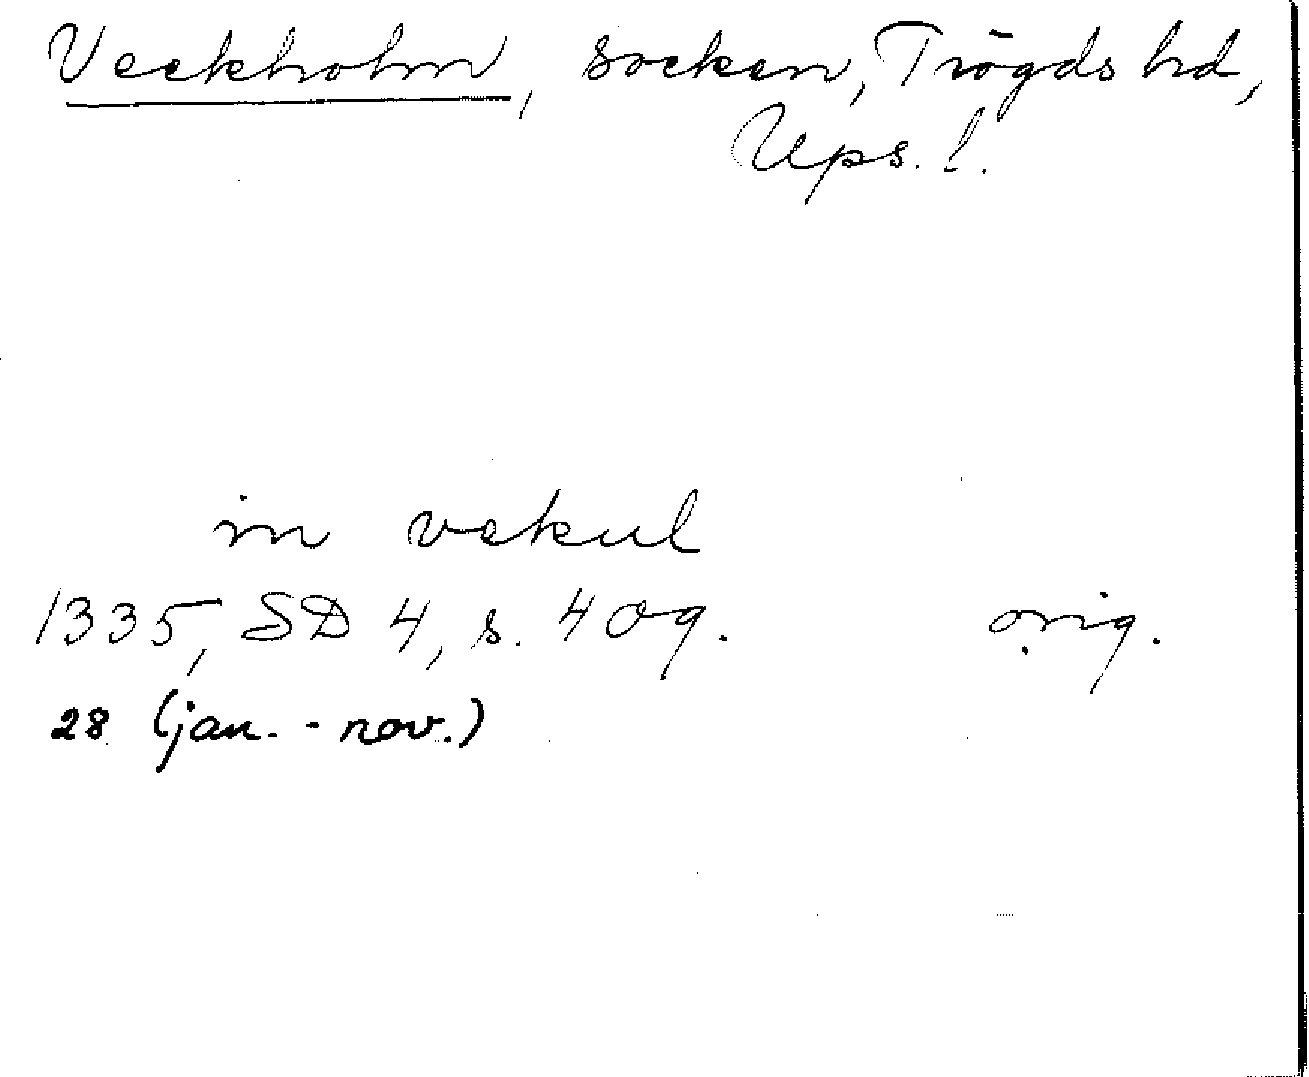 Veckholm, socken, Trögds hd,
Ups. l.
in vekul
1335, SD 4, s. 409. orig.
28 (jan. - nov.)